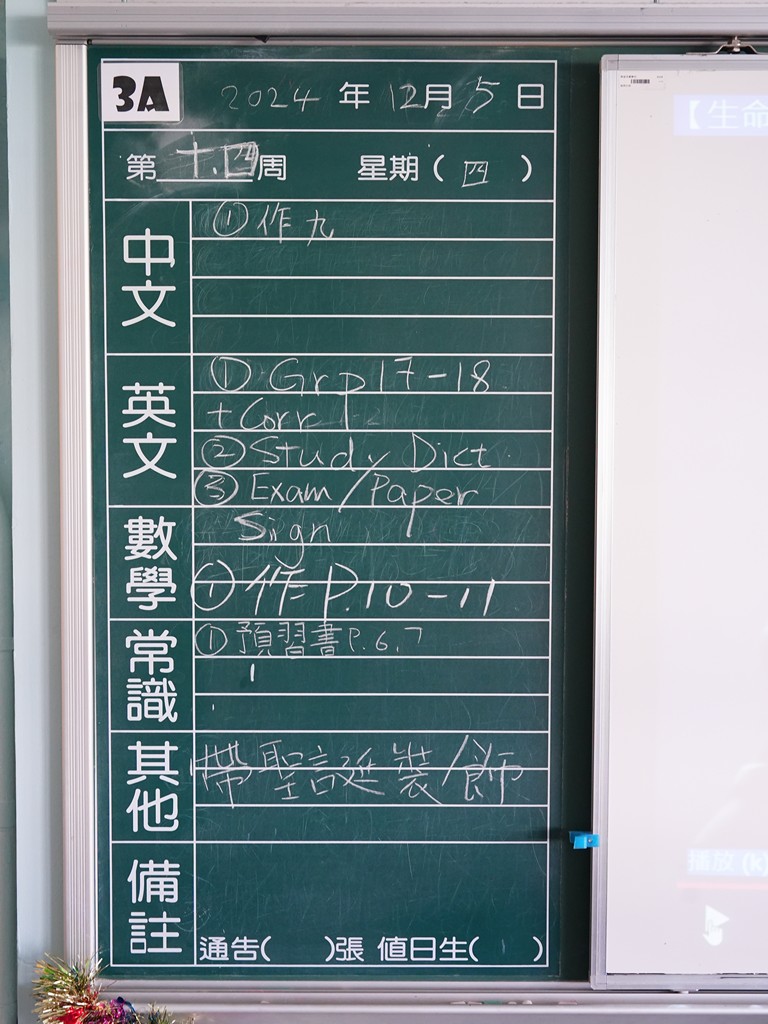 3A 2024 年 12 月 5 日
第 十四 周 星期( 四 )
中文
① 作九
英文
① Grp 17-18
+ Corr
② Study Dict.
③ Exam/Paper
Sign
數學
① 作 P.10-11
常識
① 預習書 P.6,7
其他
帶聖誕裝飾
備註
通告( )張 值日生( )
【生命
播放 (k)